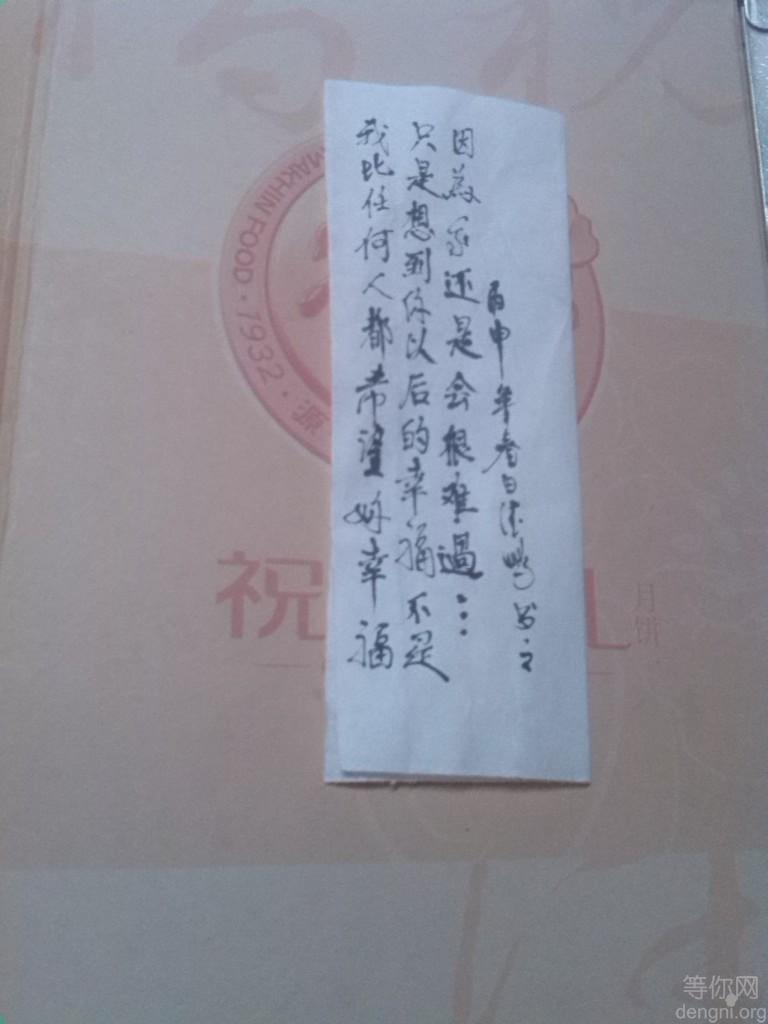 我比任何人都希望妳幸福
只是想到你以后的幸福不是
因為我还是会很难過…
丙申年春日
MAKHIN FOOD · 1932 · 源
祝
月饼
等你网
dengni.org